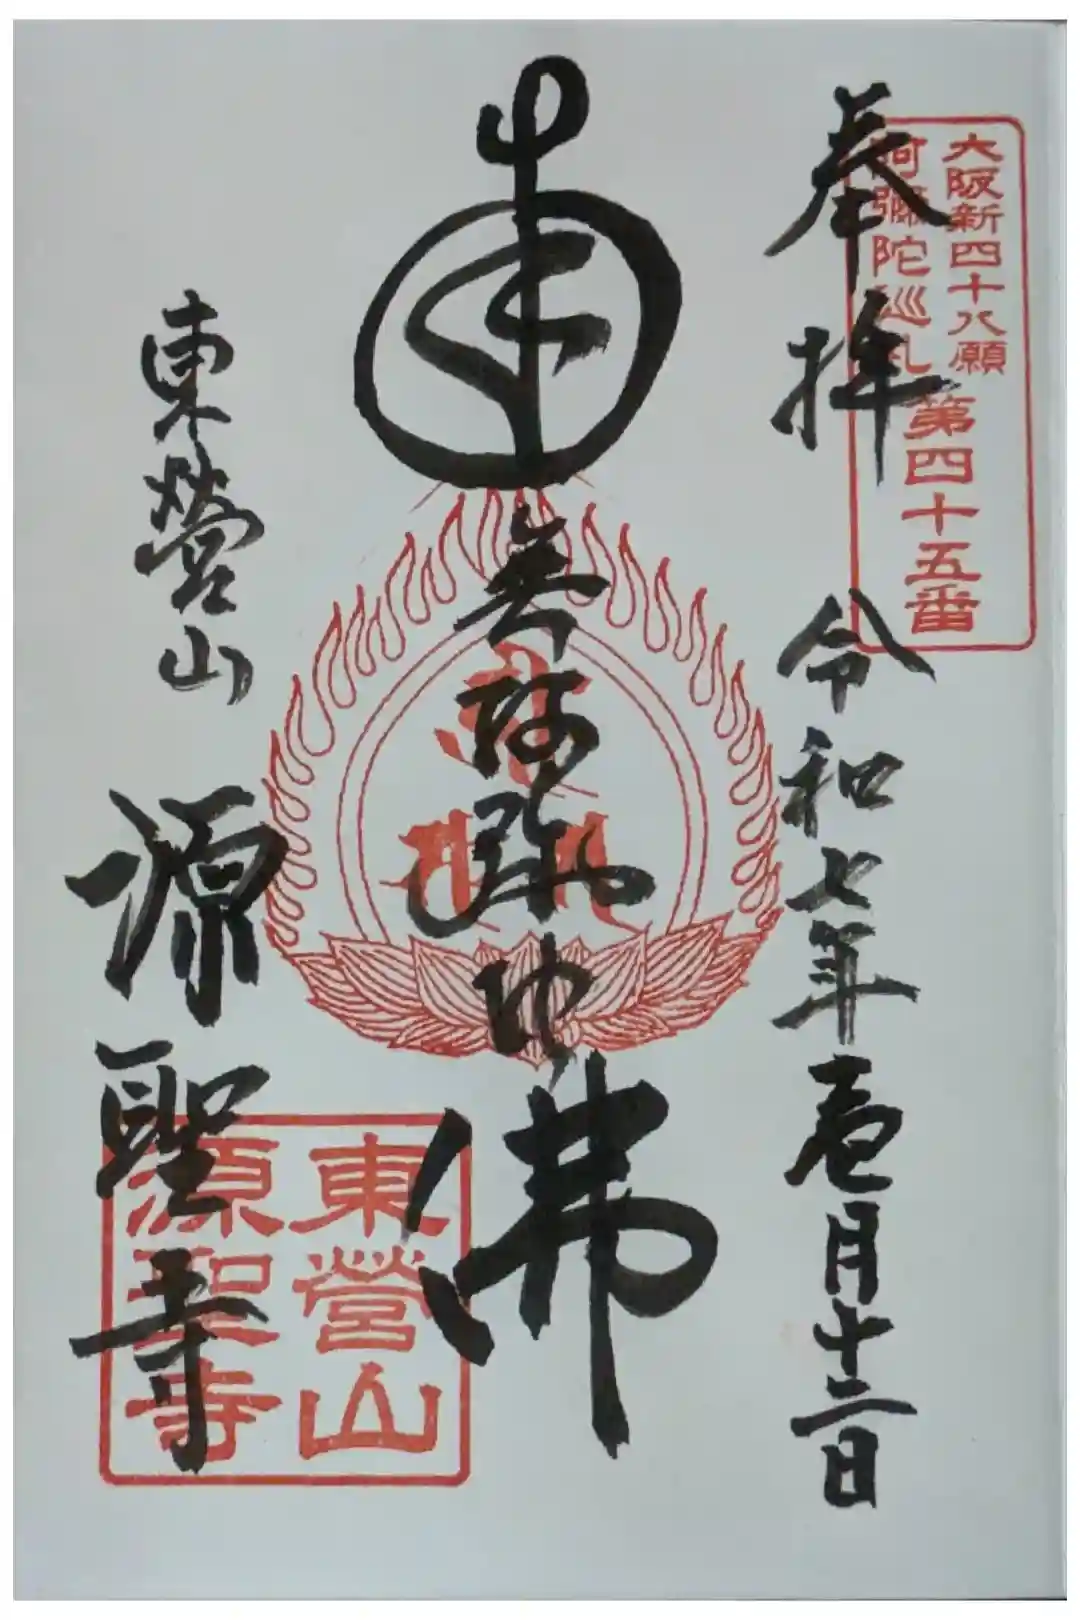 奉拝
令和七年壱月十二日
大阪新四十八願
阿彌陀巡礼
第四十五番
南無阿弥陀佛
東營山
源聖寺
東營山
源聖寺